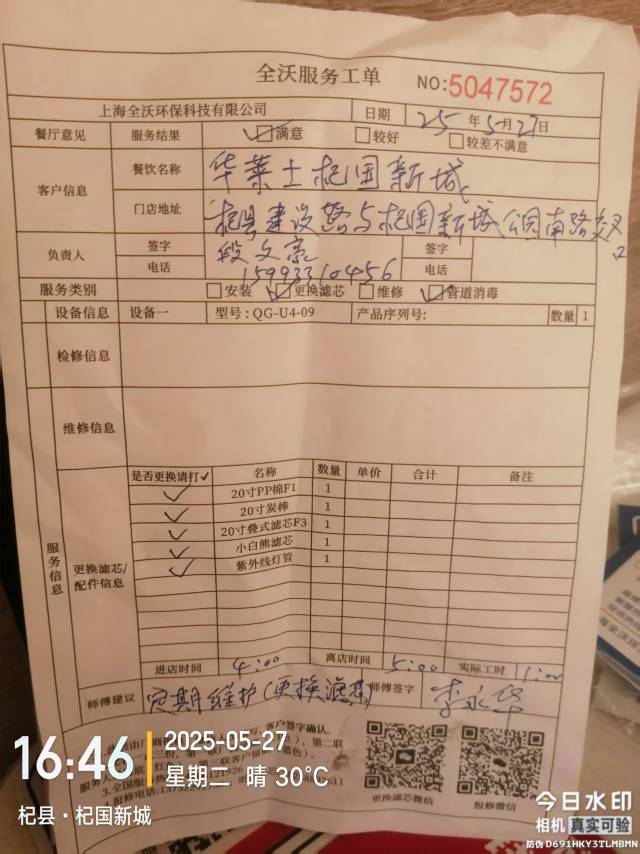 全沃服务工单 NO:5047572
上海全沃环保科技有限公司 日期 25 年 5 月 27 日
餐厅意见 服务结果 ☑满意 □较好 □较差不满意
客户信息 餐饮名称 华莱士杞国新城
门店地址 杞县建设路与杞国新城公园南路交叉口
负责人 签字 段文亮 签字
电话 15993310456 电话
服务类别 □安装 ☑更换滤芯 □维修 ☑管道消毒
设备信息 设备一 型号:QG-U4-09 产品序列号: 数量 1
检修信息
维修信息
服务信息
更换滤芯/配件信息
是否更换请打✓ 名称 数量 单价 合计 备注
✓ 20寸PP棉F1 1
✓ 20寸炭棒 1
✓ 20寸叠式滤芯F3 1
✓ 小白熊滤芯 1
✓ 紫外线灯管 1
进店时间 4:00 离店时间 5:00 实际工时 1:00
师傅建议 定期维护(更换滤芯) 师傅签字 李永华
客户签字确认。
更换滤芯微信 报修微信
16:46
2025-05-27
星期二 晴 30℃
杞县·杞国新城
今日水印
相机 真实可验
防伪 D691HKY3TLMBMN